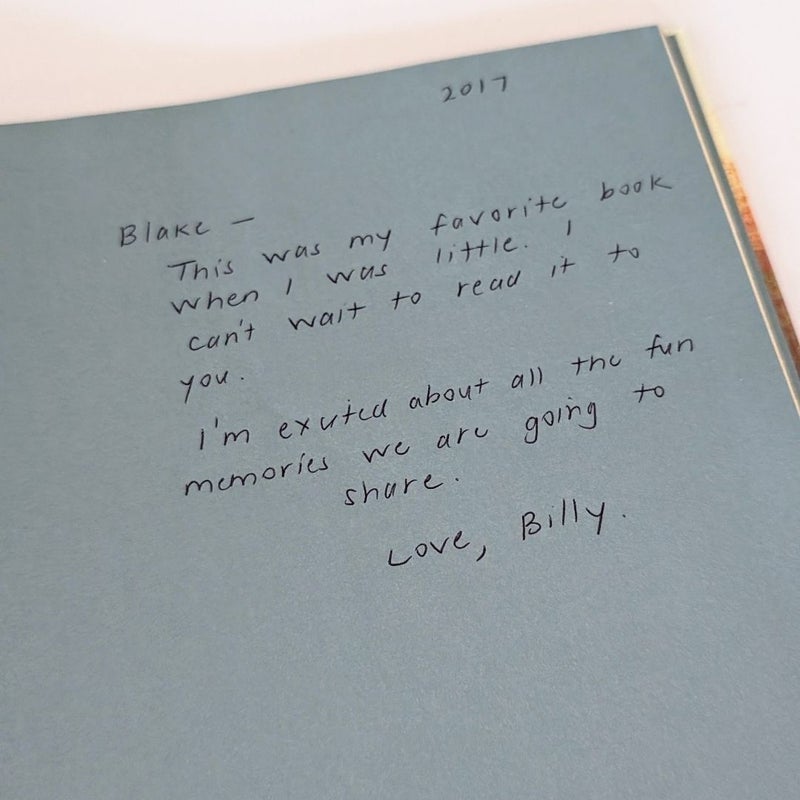 2017
Blake –
This was my favorite book
when I was little. I
can't wait to read it to
you.
I'm excited about all the fun
memories we are going to
share.
Love, Billy.